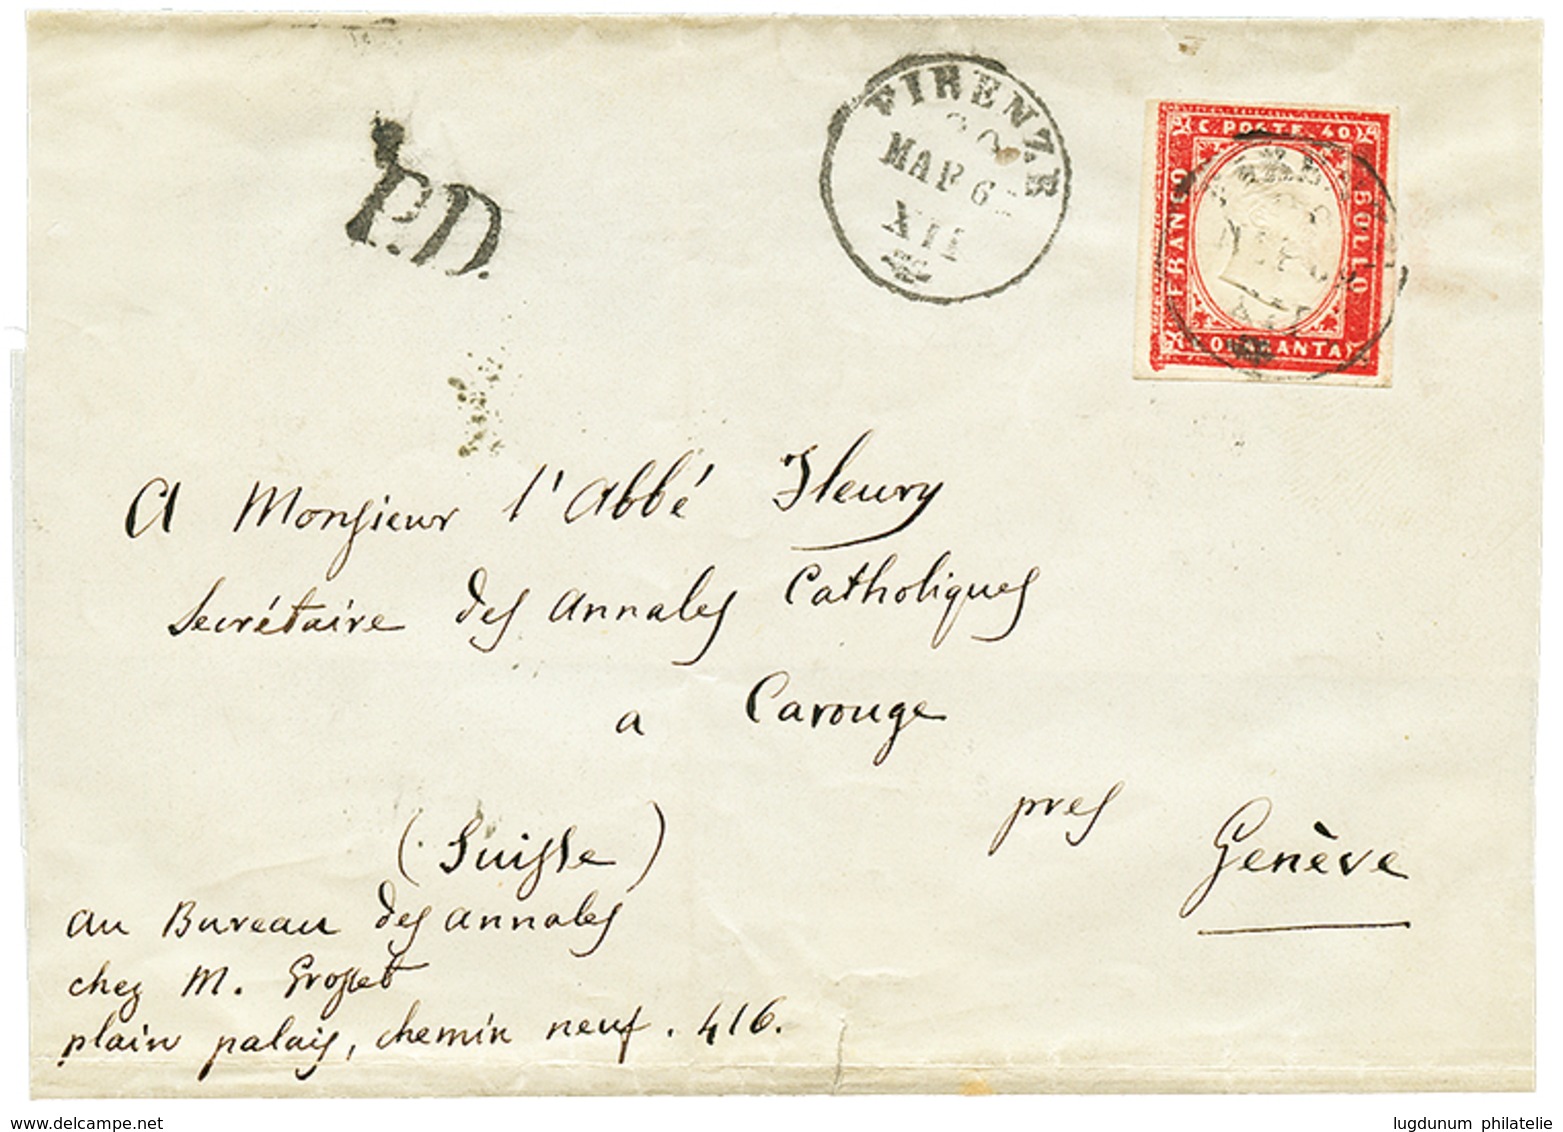 P.D.
FIRENZE
MAR 6
XII
C. POSTE 40
FRANCO
BOLLO
C. QUARANTA
A Monsieur l'Abbé Fleury
Secrétaire des Annales Catholiques
a Carouge
pres
Genève
(Suisse)
au Bureau des annales
chez M. Grosset
plain palais, chemin neuf. 416.
www.delcampe.net
lugdunum philatelie